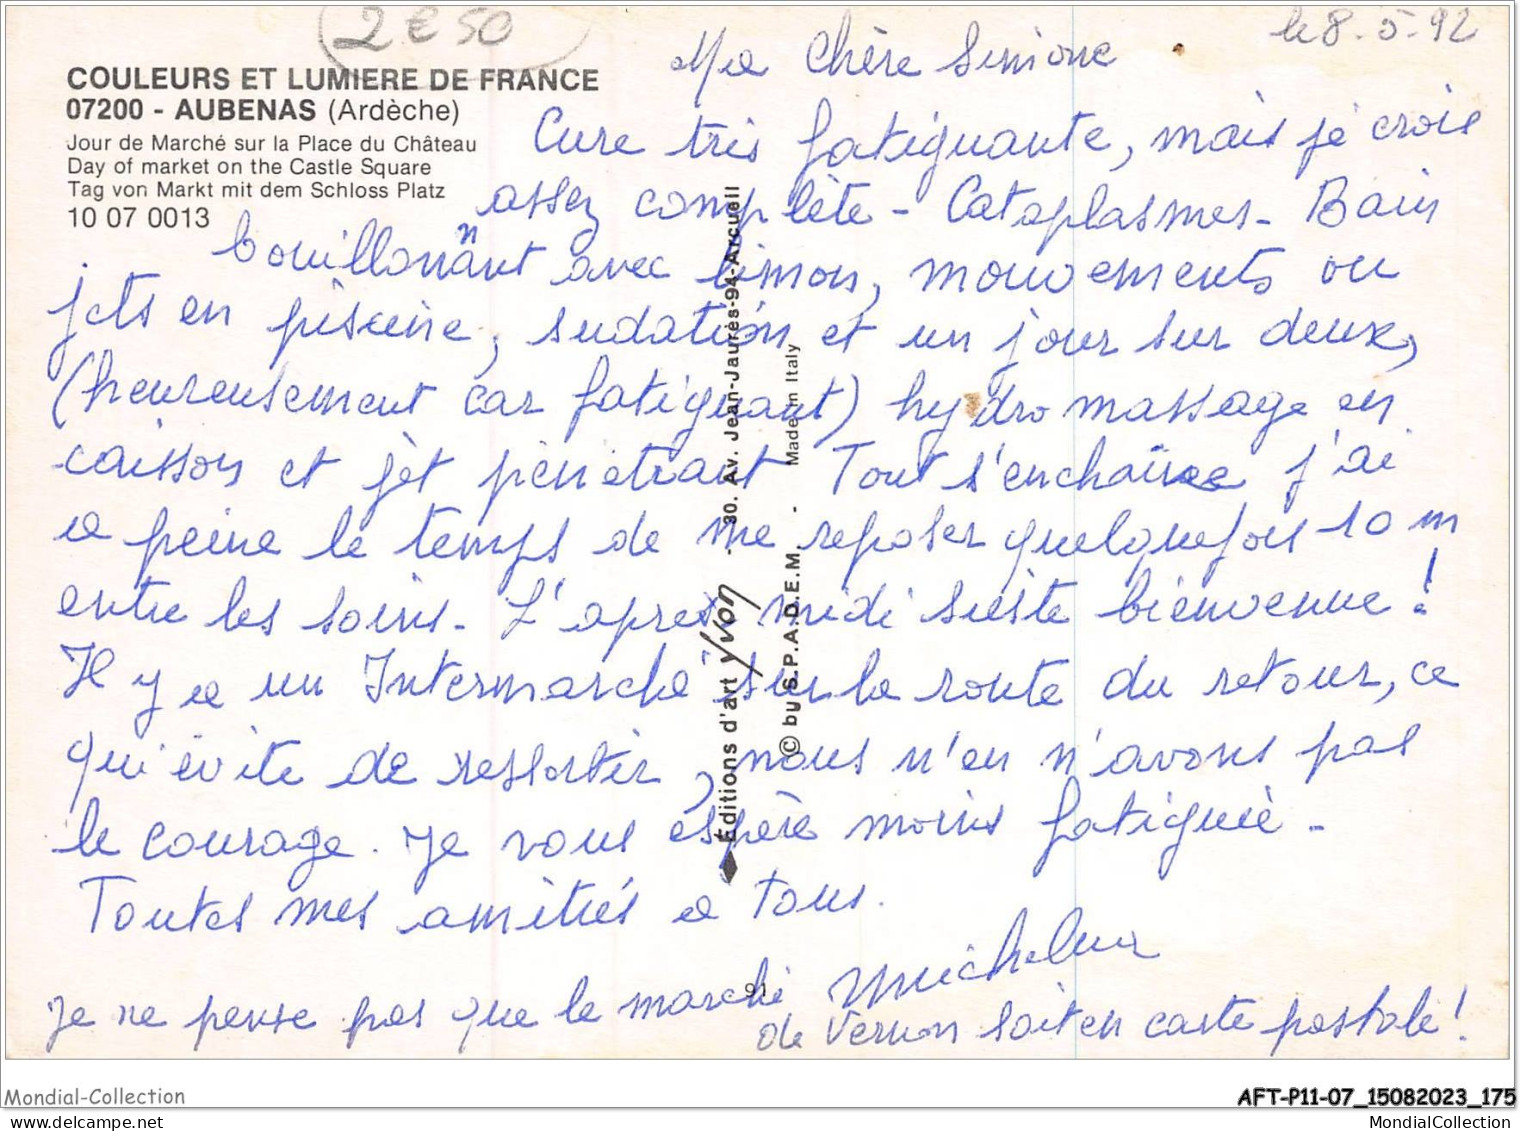 2 € 50
le 8-5-92
Ma Chère Simone
COULEURS ET LUMIERE DE FRANCE
07200 - AUBENAS (Ardèche)
Jour de Marché sur la Place du Château
Day of market on the Castle Square
Tag von Markt mit dem Schloss Platz
10 07 0013
Cure très fatiguante, mais je crois
assez complète - Cataplasmes - Bain
bouillonnant avec limon, mouvements ou
jets en piscine, sudation et un jour sur deux,
(heureusement car fatiguant) hydromassage en
caisson et jet pénétrant Tout s'enchaîne j'ai
à peine le temps de me reposer quelquefois 10 m
entre les soins. L'après midi sieste bienvenue !
Il y a un Intermarché sur la route du retour, ce
qui évite de ressortir, nous n'en n'avons pas
le courage. Je vous espère moins fatiguée -
Toutes mes amitiés à tous.
Je ne pense pas que le marché
de Vernon soit en carte postale !
Éditions d'art yvon - 30. Av. Jean-Jaurès-94-Arcueil
© by S.P.A.D.E.M. - Made in Italy
91
Mondial-Collection
AFT-P11-07_15082023_175
mondialcollection.delcampe.net
MondialCollection